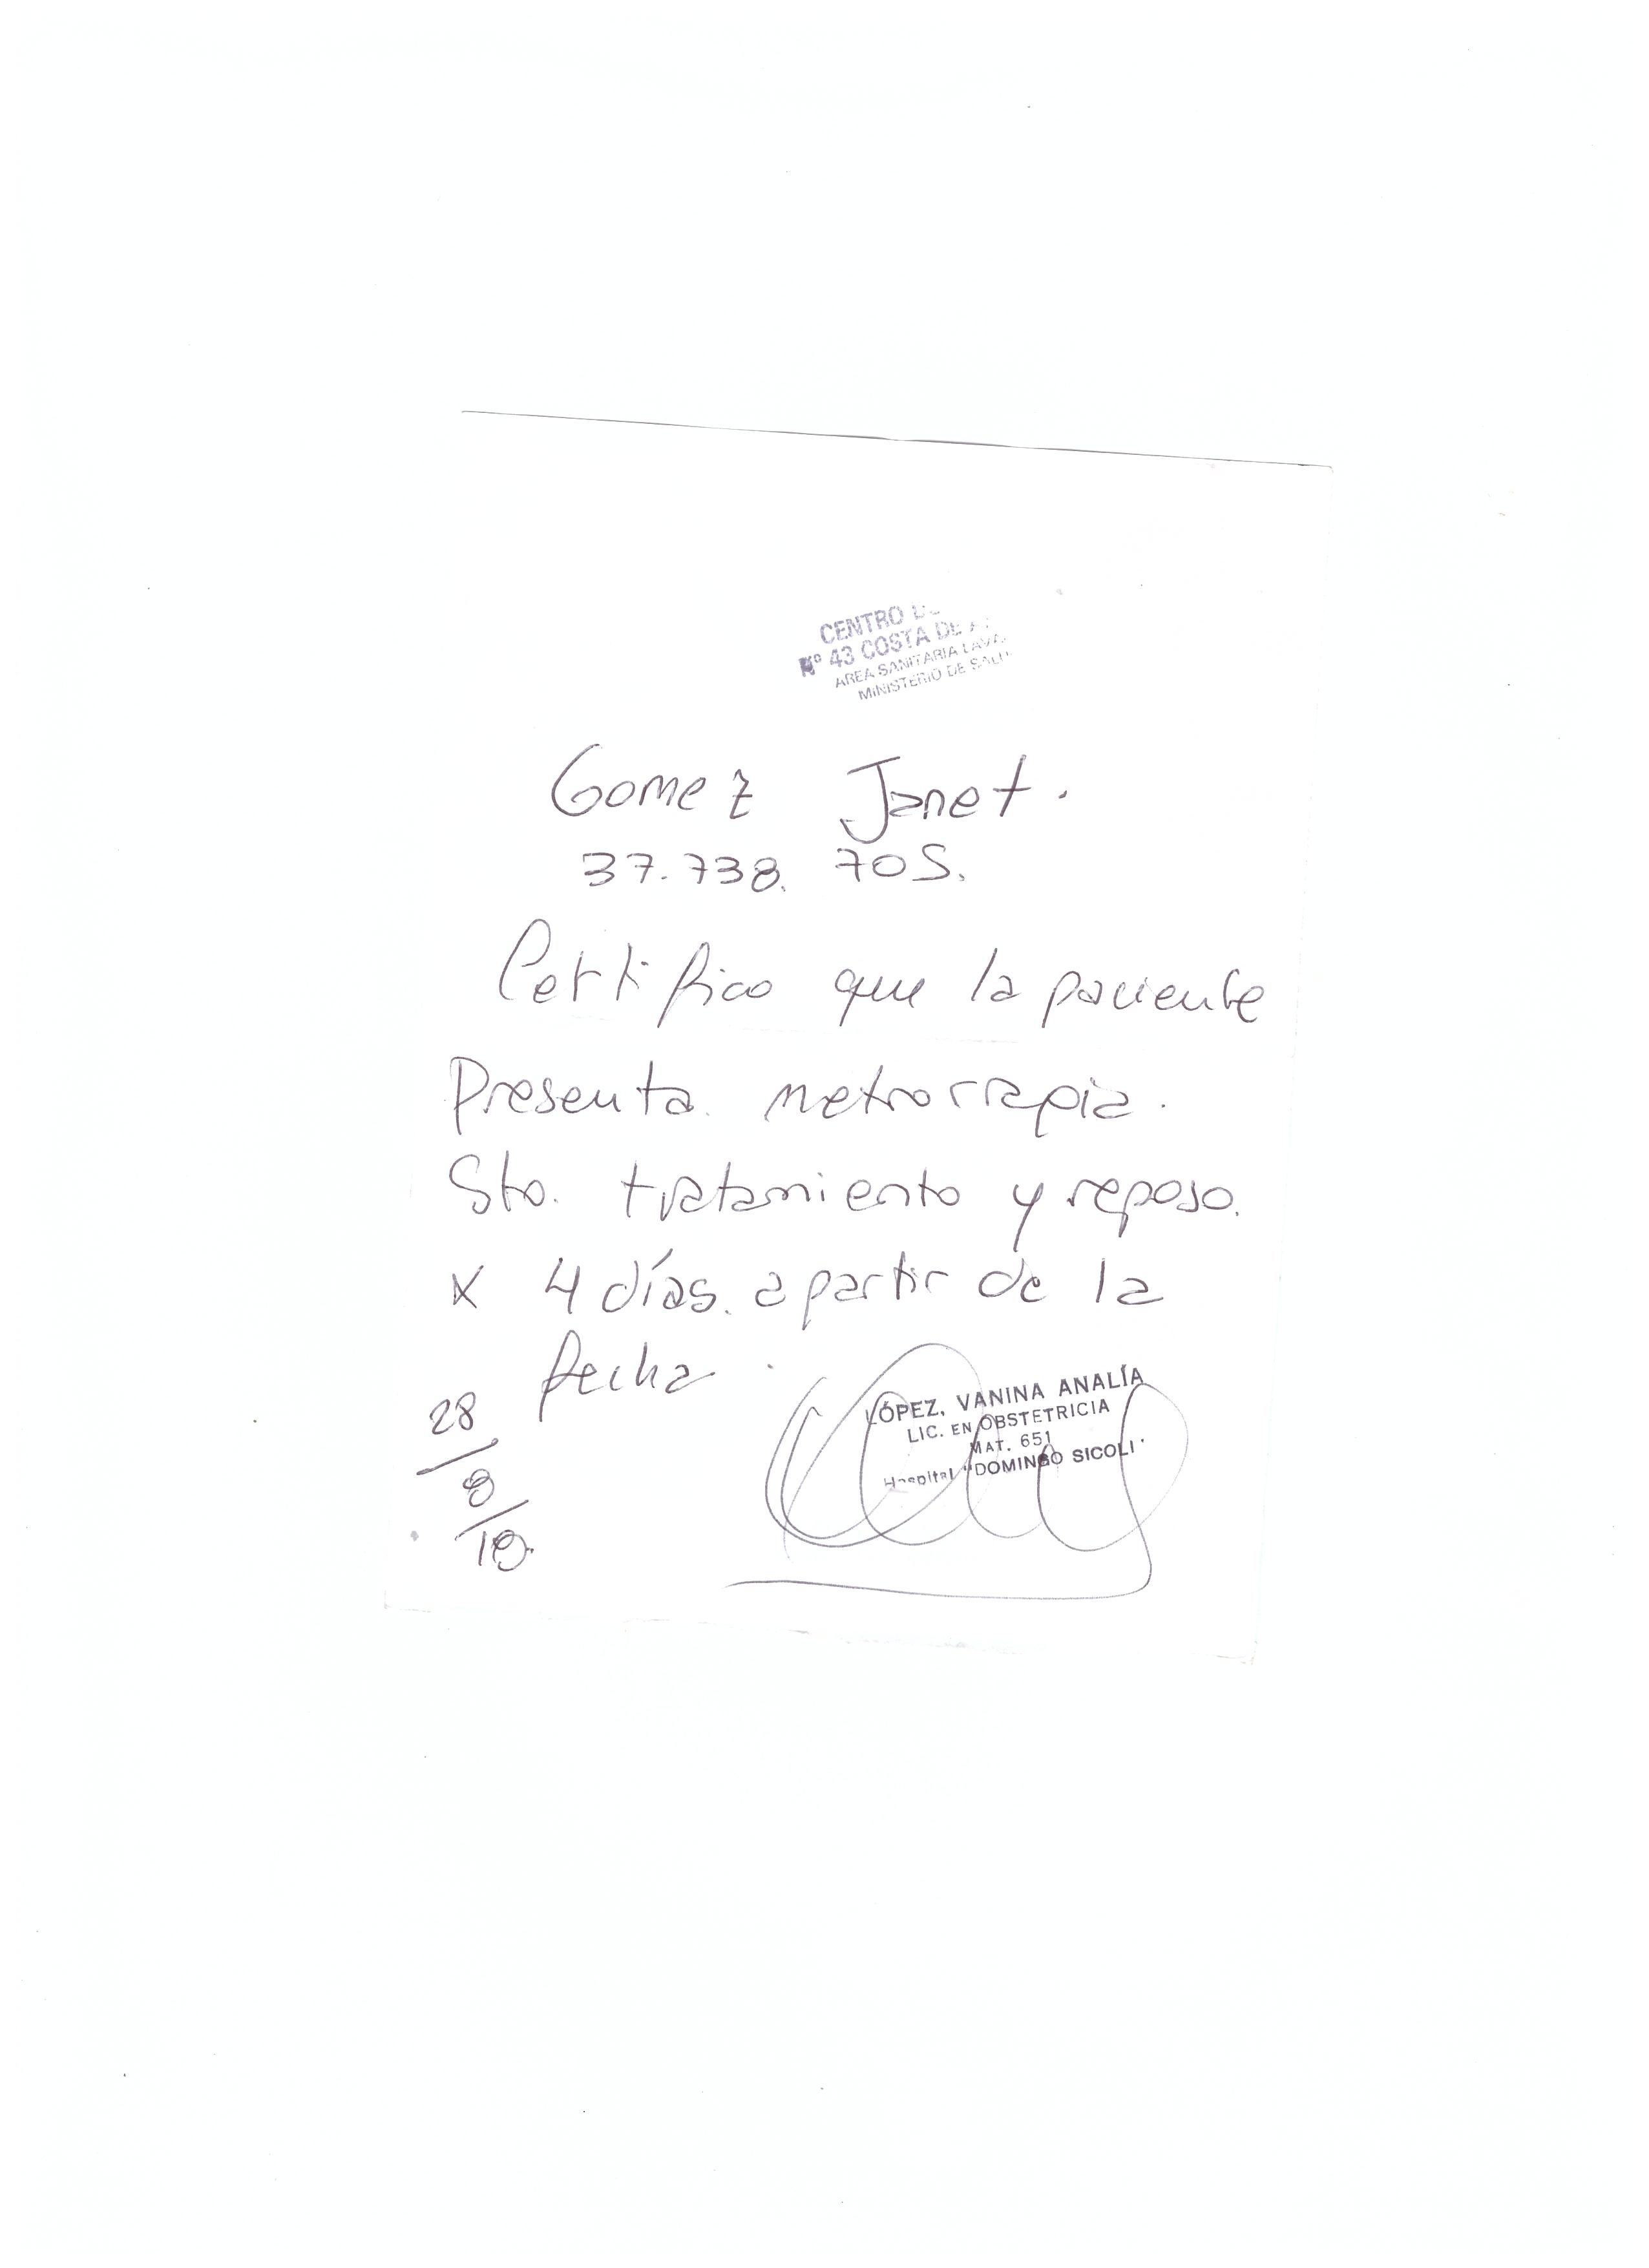 CENTRO
Nº 43 COSTA DE
AREA SANITARIA LAVA
MINISTERIO DE SALU
Gomez Janet.
37.738.705.
Certifico que la paciente
Presenta metrorragia.
Sto. tratamiento y reposo.
x 4 días. a partir de la
fecha.
28
/
8
/
LÓPEZ, VANINA ANALÍA
LIC. EN OBSTETRICIA
MAT. 651
Hospital "DOMINGO SICOLI"